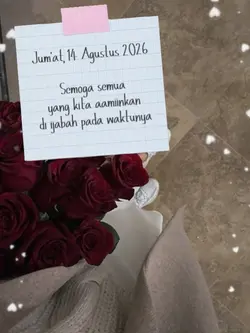 Jum'at, 14 Agustus 2026
Semoga semua
yang kita aamiinkan
di ijabah pada waktunya